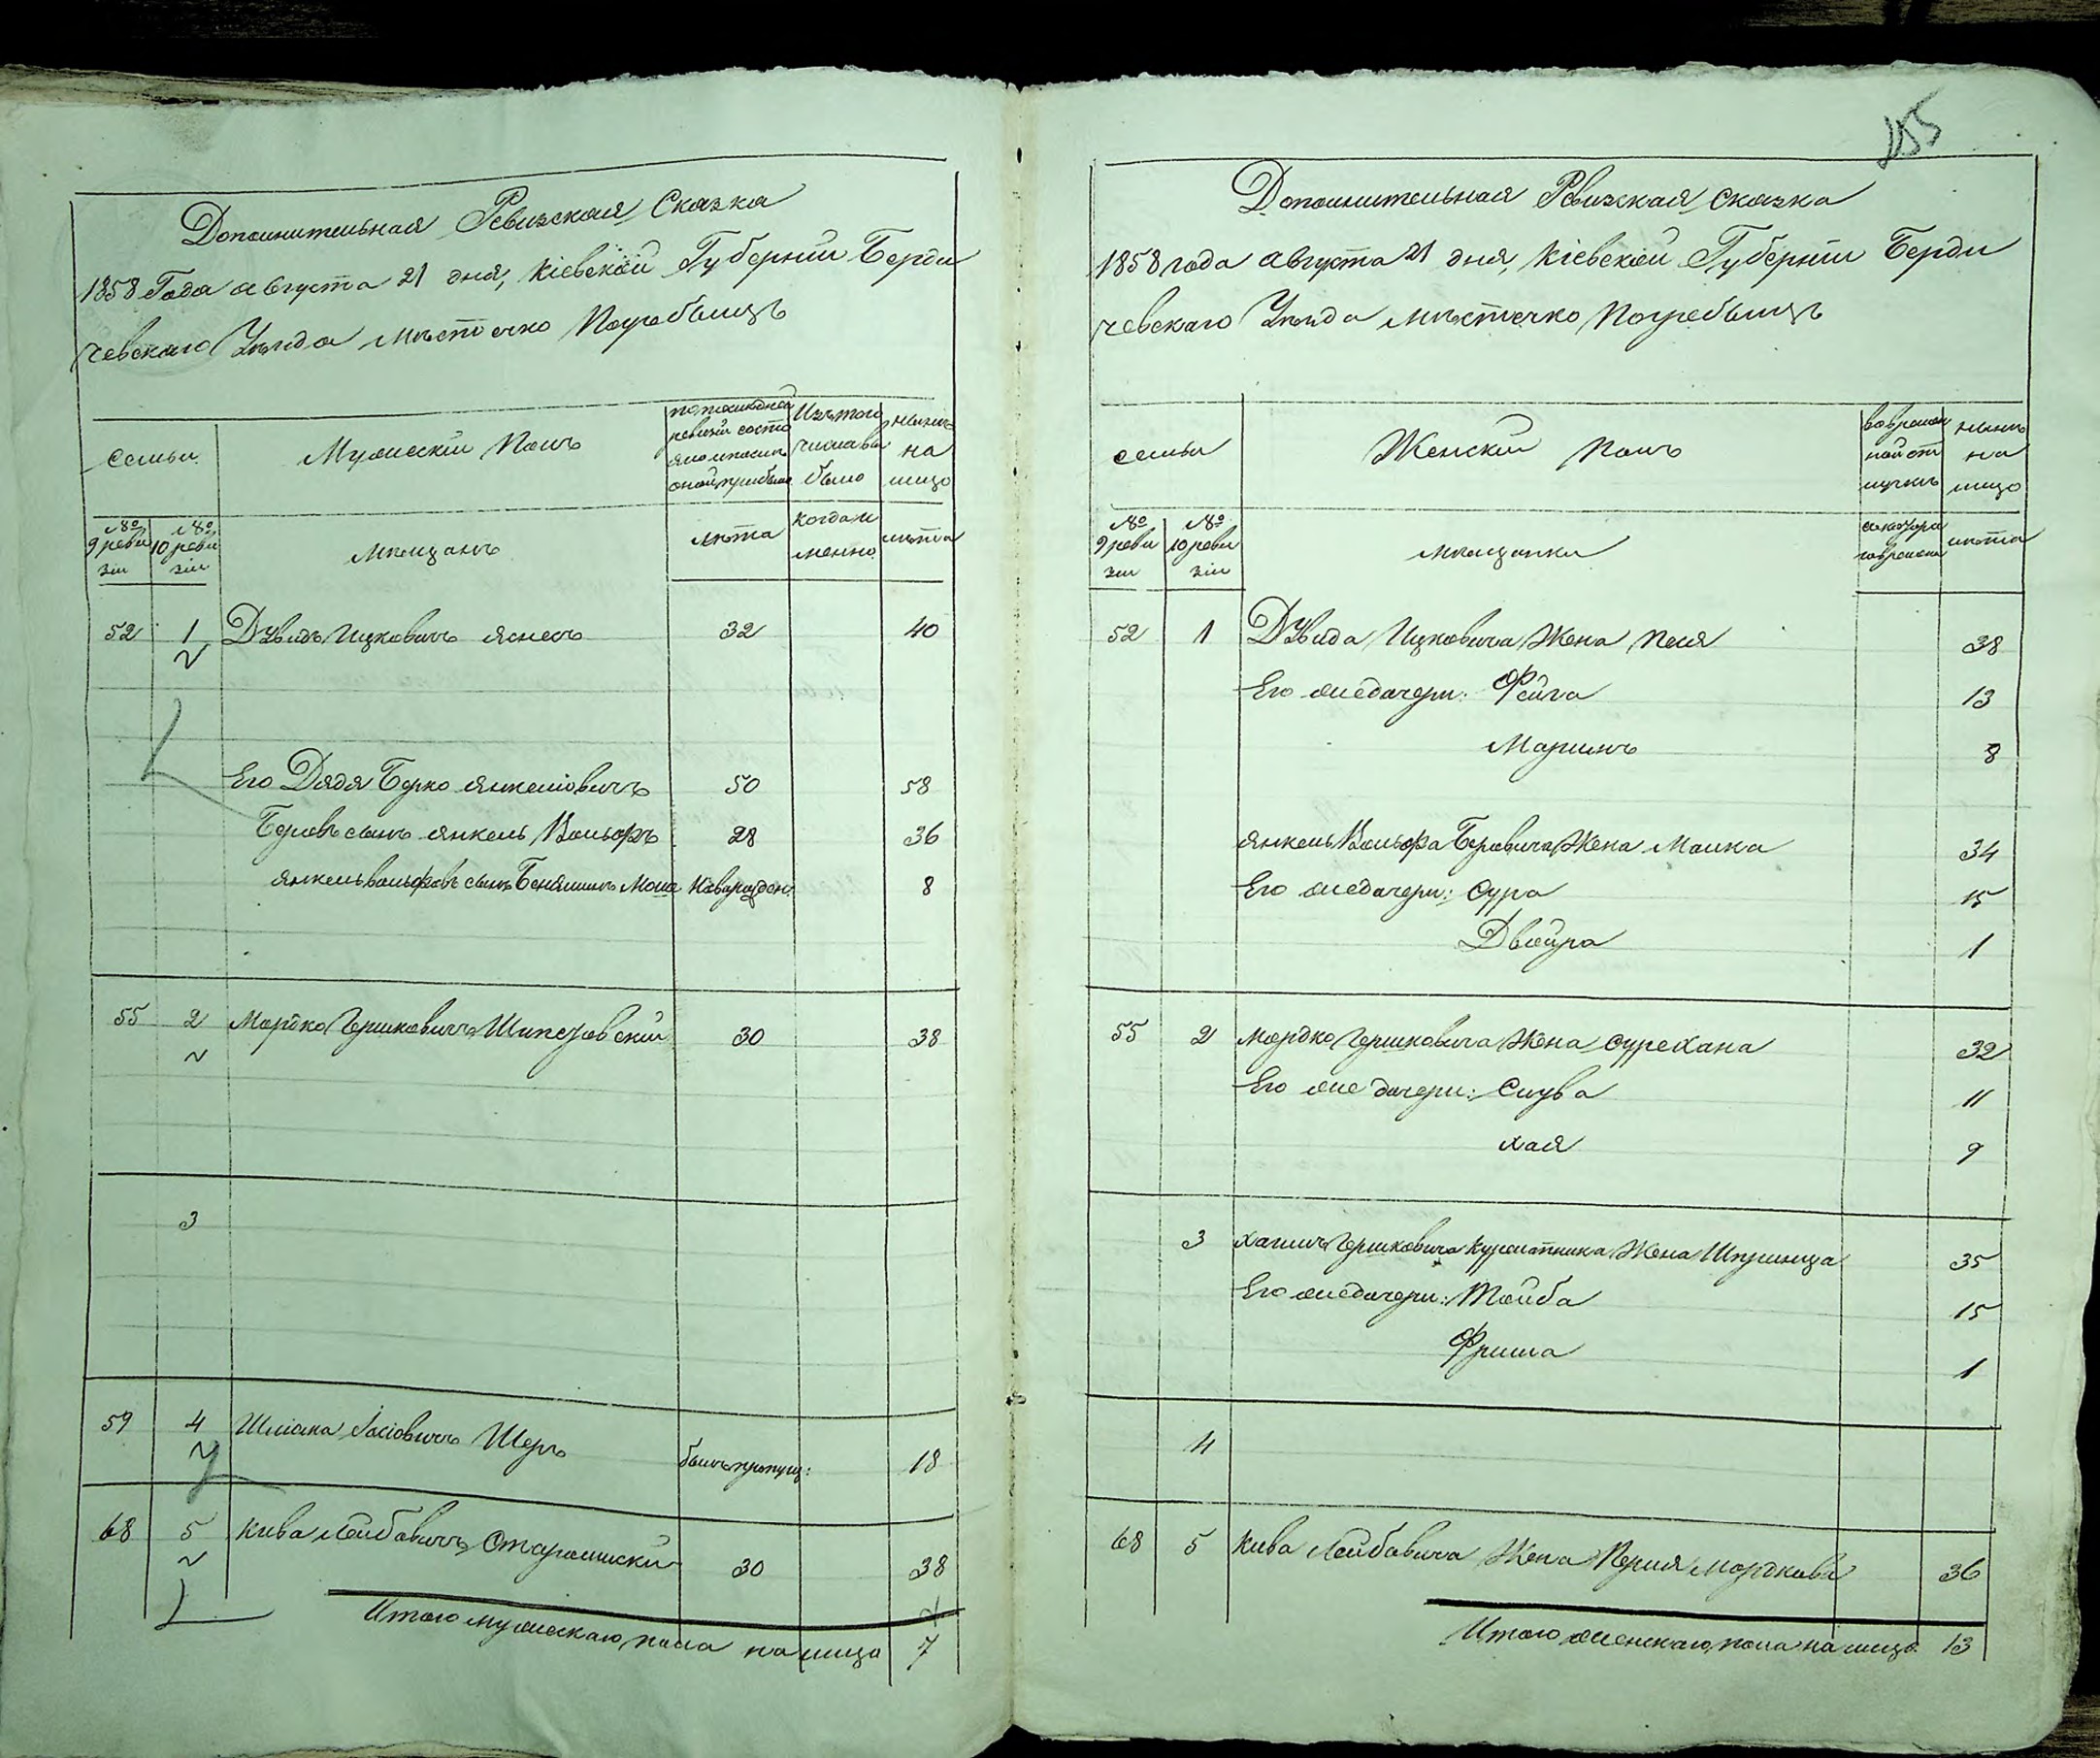 Дополнительная Ревизская Сказка
1858 Года августа 21 дня, Кіевской Губерніи Берди
чевскаго Уѣзда мѣстечко Погребыщъ
Семьи
Мужескій Полъ
по послѣдней
ревизіи состо
яло и послѣ
оной прибыло
Изъ того
числа вы
было
нынѣ
на
лицо
№ 9 реви зіи
№ 10 реви зіи
мѣщанъ
лѣта
когда и
менно
лѣта
52 1 Дувидъ Ицковичъ Яснесъ 32 40
Его Дядя Берко Янкеліовичъ 50 58
Берковъ сынъ Янкель Вольфъ 28 36
Янкель Вольфовъ сынъ Беняминъ Моша Новорожден. 8
55 2 Мордко Гершковичъ Шипетовскій 30 38
3
59 4 Шліома Іосіовичъ Шеръ былъ пропущ: 18
68 5 Кива Лейбовичъ Старошискій 30 38
Итого мужескаго пола на лицо 7
155
Дополнительная Ревизская Сказка
1858 года августа 21 дня, Кіевской Губерніи Берди
чевскаго Уѣзда мѣстечко Погребыщъ
семьи
Женскій Полъ
во времен
ной от
лучкѣ
нынѣ
на
лицо
№ 9 реви зіи
№ 10 реви зіи
мѣщанки
лѣта
52 1 Дувида Ицковича Жена Песя 38
Его же дочери: Фейга 13
Маріимъ 8
Янкель Вольфа Берковича Жена Малка 34
Его же дочери: Сура 15
Двойра 1
55 2 Мордко Гершковича Жена Сурехана 32
Его же дочери: Слува 11
Хая 9
3 Хаимъ Гершковича Куролтника Жена Шпринца 35
Его же дочери: Тайба 15
Фрима 1
4
68 5 Кива Лейбовича Жена Перля Мордкова 36
Итого женскаго пола на лицо 13